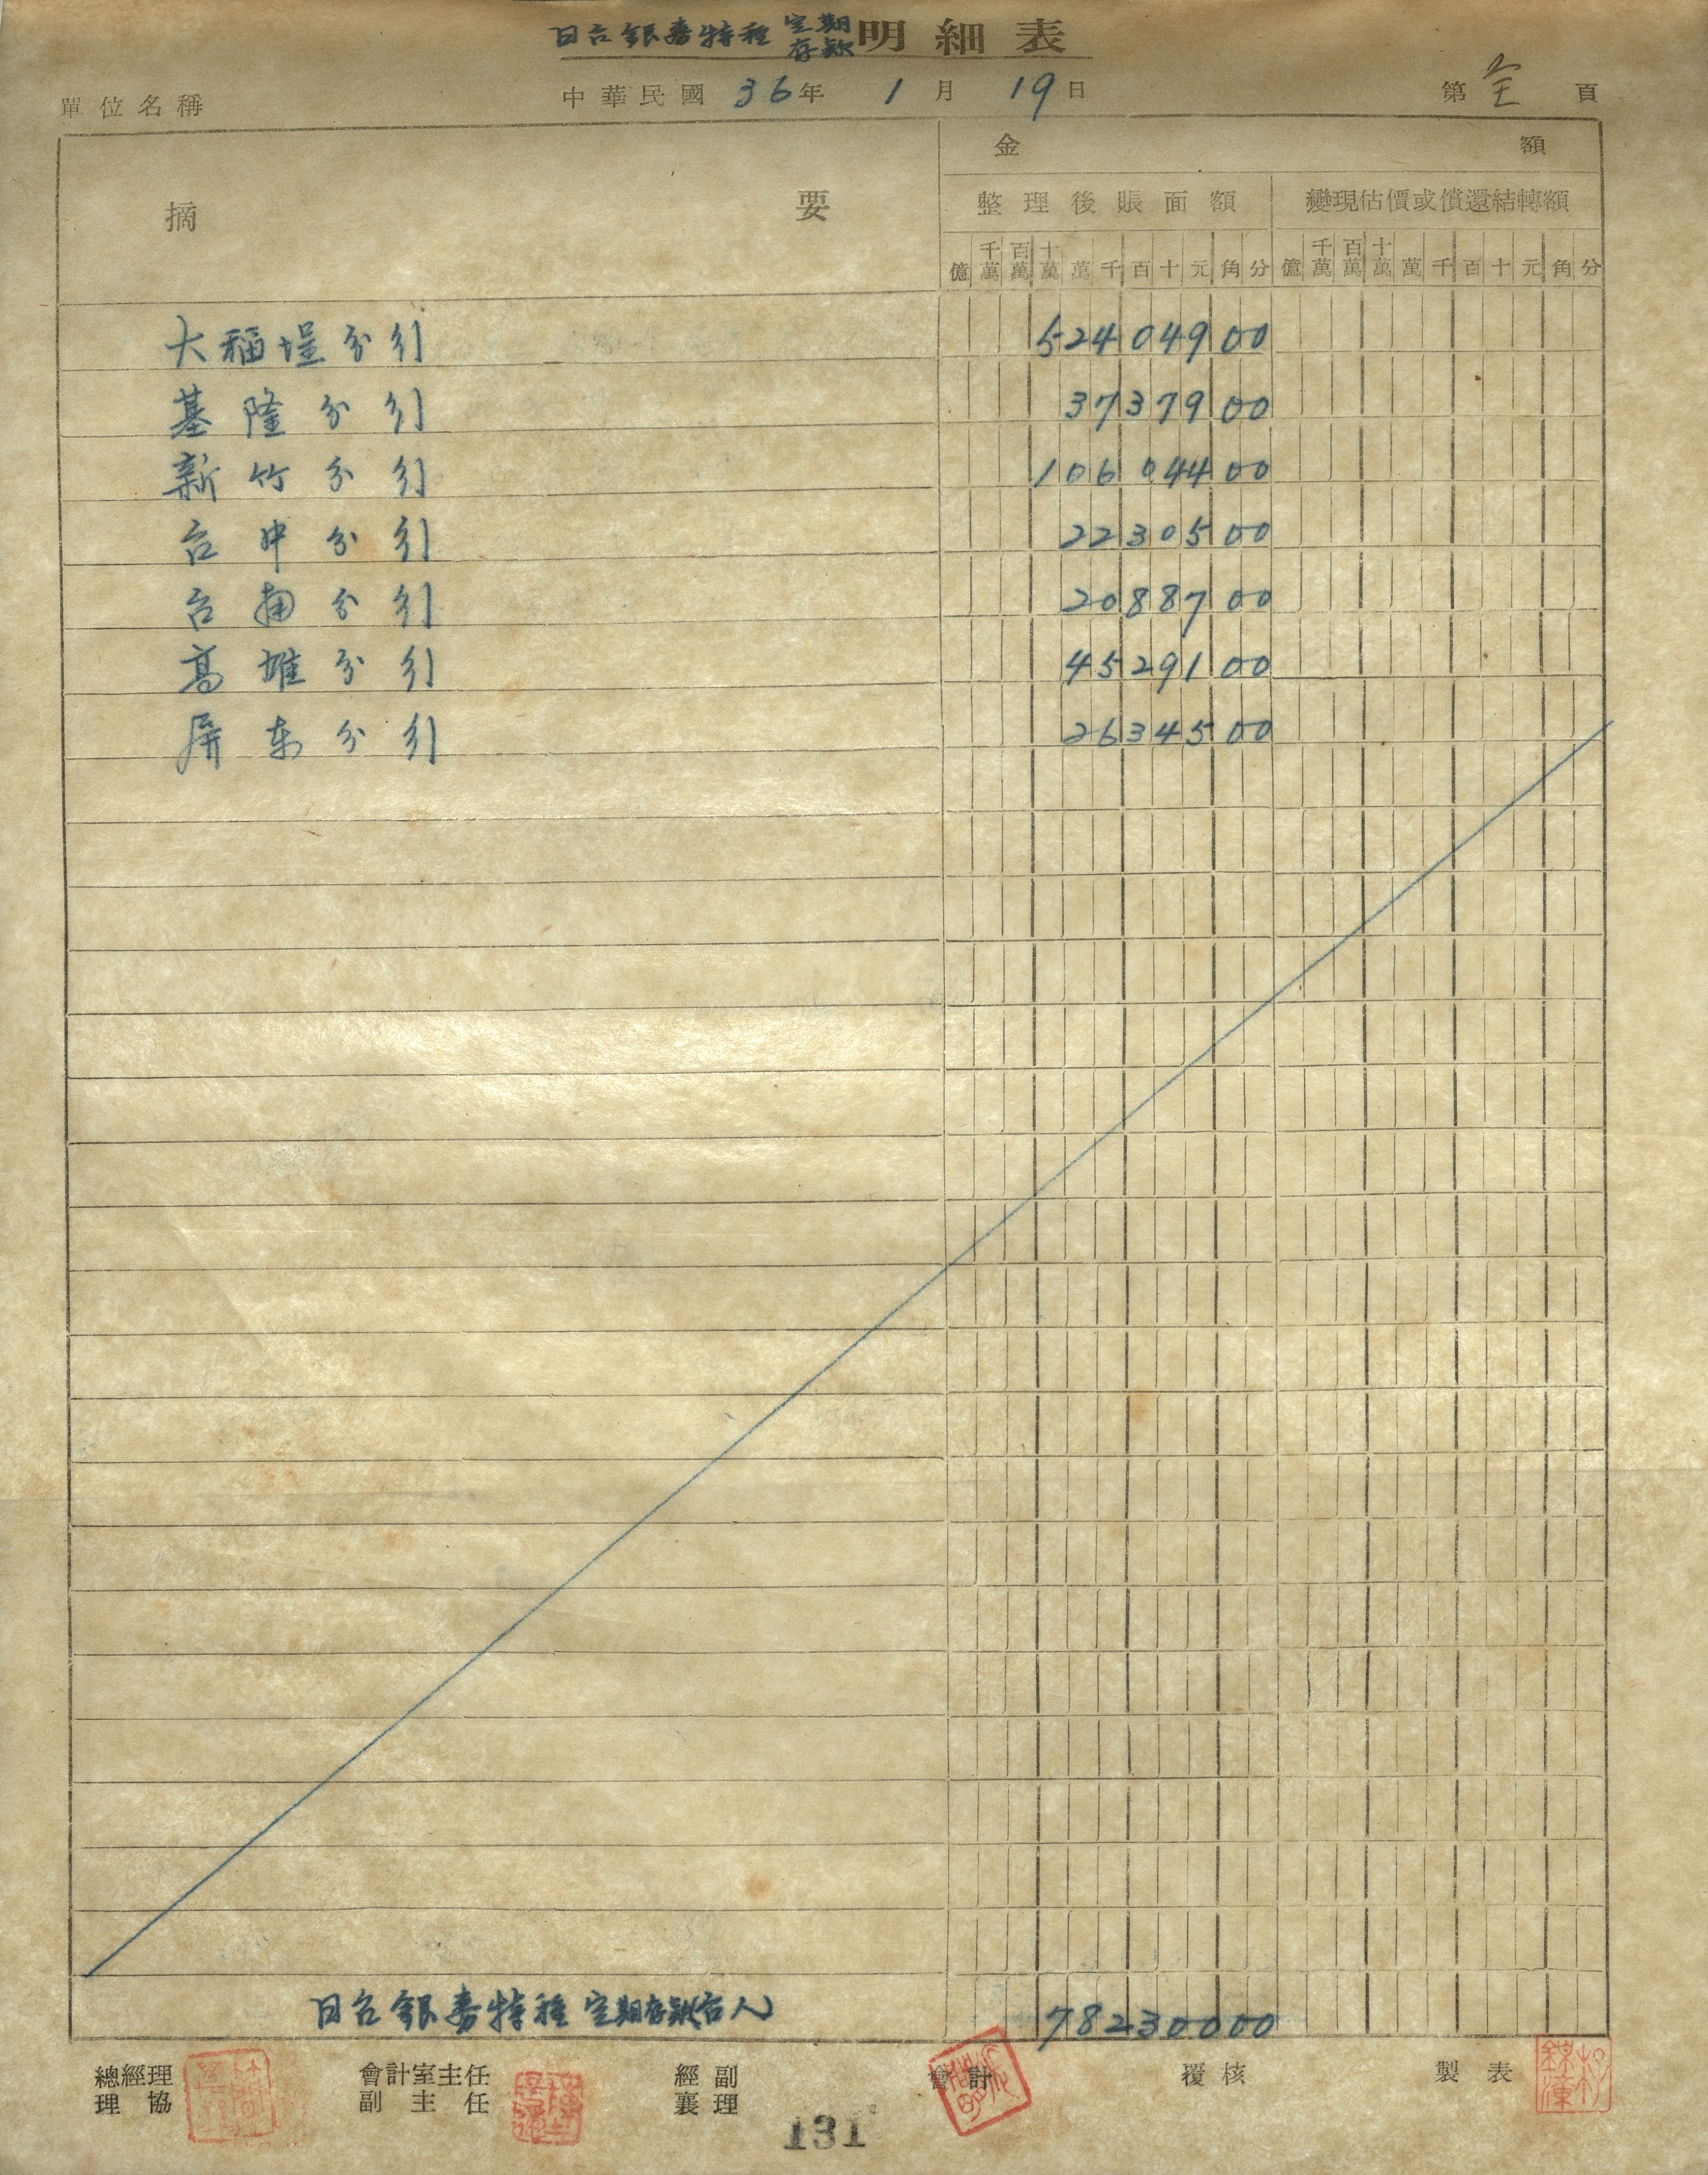 日台銀券特種定期存款明細表
單位名稱 中華民國36年1月19日 第全頁
摘要 金額
整理後賬面額 變現估價或償還結轉額
億 千萬 百萬 十萬 萬 千 百 十 元 角 分 億 千萬 百萬 十萬 萬 千 百 十 元 角 分
大稻埕分行 52404900
基隆分行 3737900
新竹分行 10604400
台中分行 2230500
台南分行 2088700
高雄分行 4529100
屏東分行 2634500
日台銀券特種定期存款(台人) 78230000
總經理 會計室主任 經副 會計 覆核 製表
理協 副主任 襄理
131